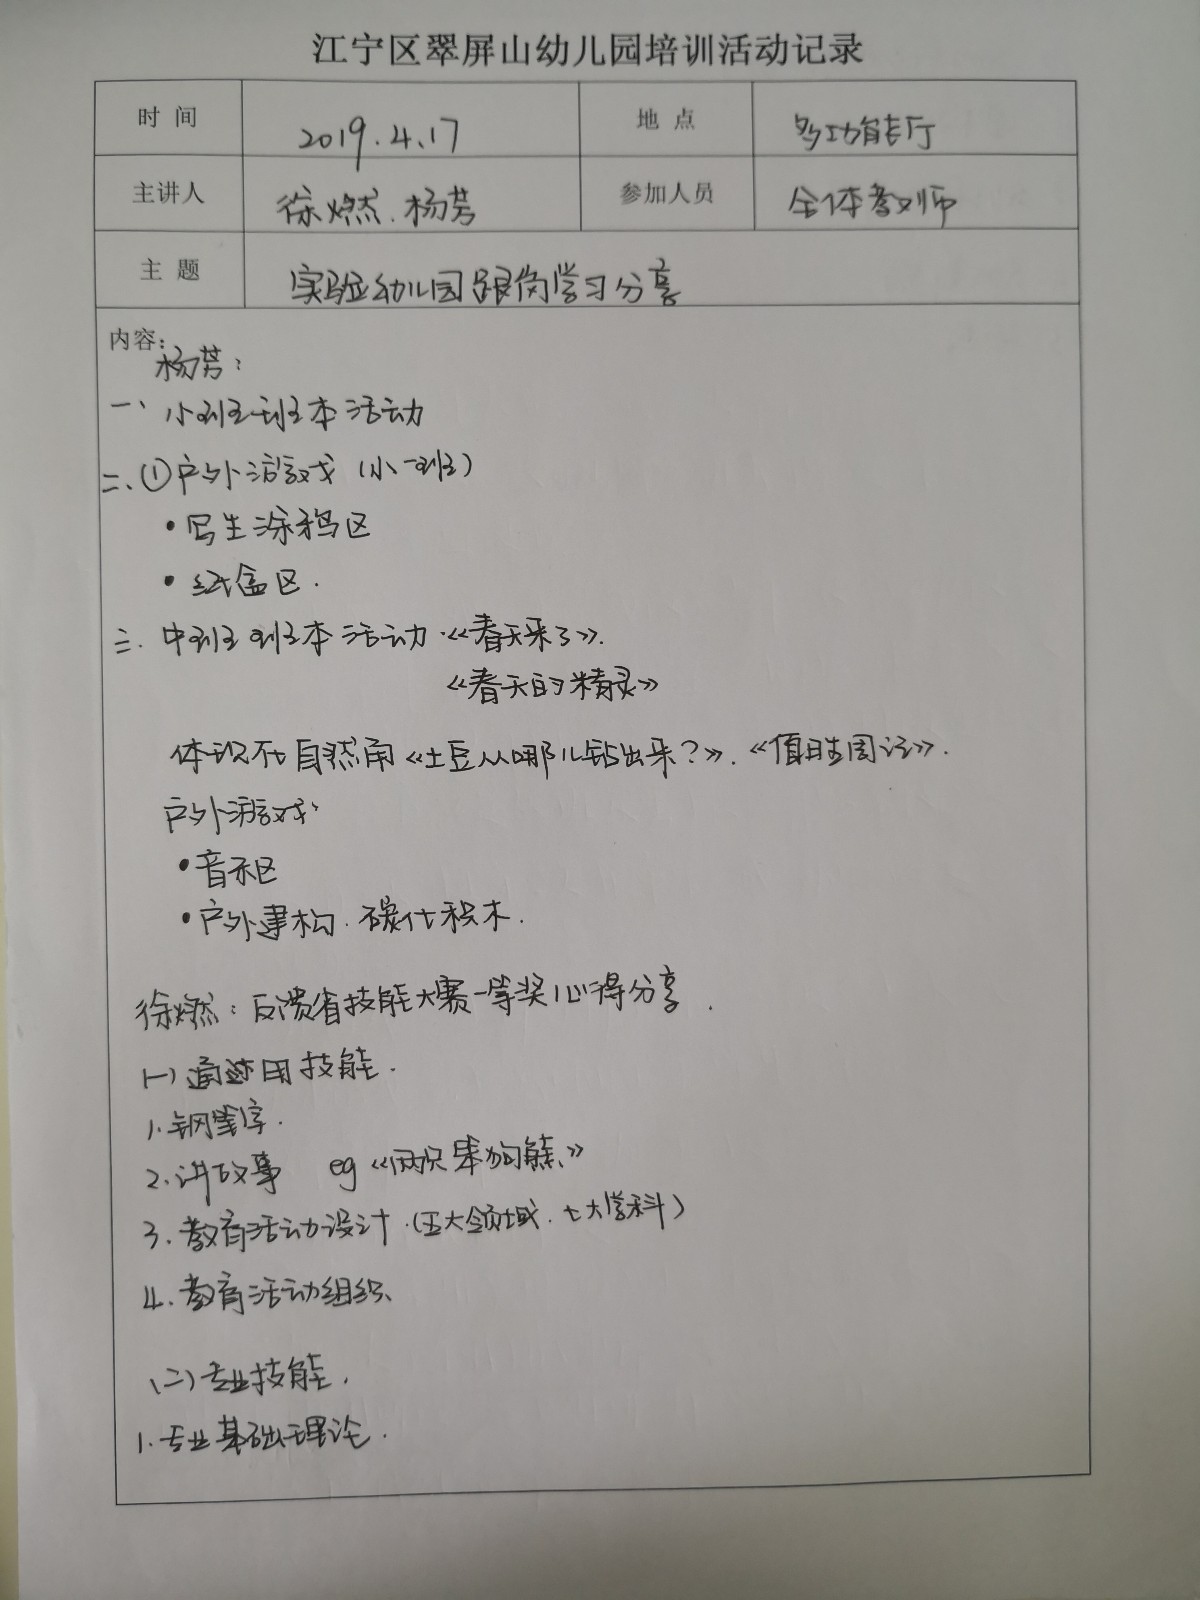 江宁区翠屏山幼儿园培训活动记录
时 间 2019.4.17 地 点 多功能厅
主讲人 徐燃、杨芳 参加人员 全体教师
主 题 实验幼儿园跟岗学习分享
内容:
杨芳:
一、小班班本活动
二、①户外游戏(小一班)
•写生涂鸦区
•纸盒区.
三. 中班班本活动.《春天来了》.
《春天的精灵》
体现在自然角《土豆从哪儿钻出来?》.《值日生周记》.
户外游戏
•音乐区
•户外建构.碳化积木.
徐燃: 反馈省技能大赛一等奖心得分享.
(一)通适用技能.
1.钢笔字.
2.讲故事 eg《两只笨狗熊》
3.教育活动设计.(五大领域.七大学科)
4.教育活动组织、
(二)专业技能.
1.专业基础理论.